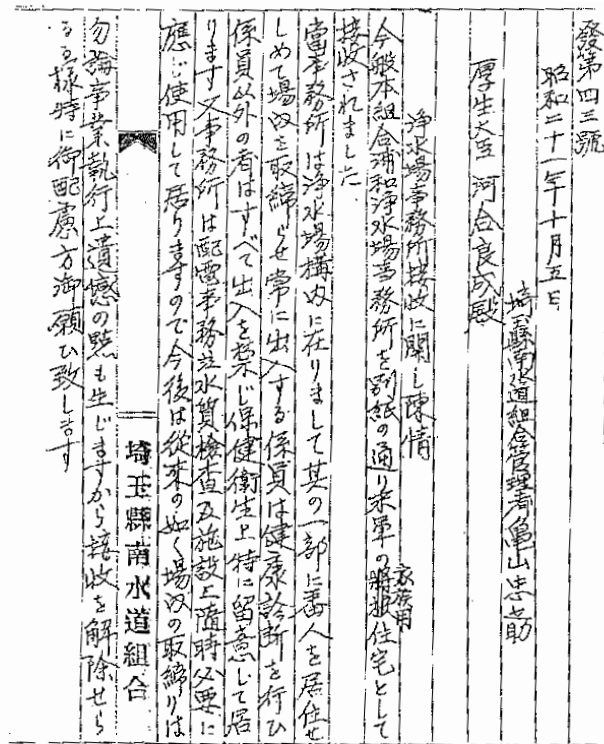 發第四三號
昭和二十一年十月五日
埼玉縣南水道組合管理者亀山忠助
厚生大臣 河合良成殿
浄水場事務所接收に関し陳情
今般本組合浦和浄水場事務所を別紙の通り米軍の将校家族用住宅として
接收されました
當事務所は浄水場構内に在りまして其の一部に番人を居住せ
しめて場内を取締らせ常に出入する係員は健康診断を行ひ
係員以外の者はすべて出入を禁じ保健衛生上特に留意して居
ります又事務所は配電事務並水質検査及施設上随時必要に
應じ使用して居りますので今後は従来の如く場内の取締りは
埼玉縣南水道組合
勿論事業執行上遺憾の点も生じますから接收を解除せら
るる様特に御配慮方御願ひ致します